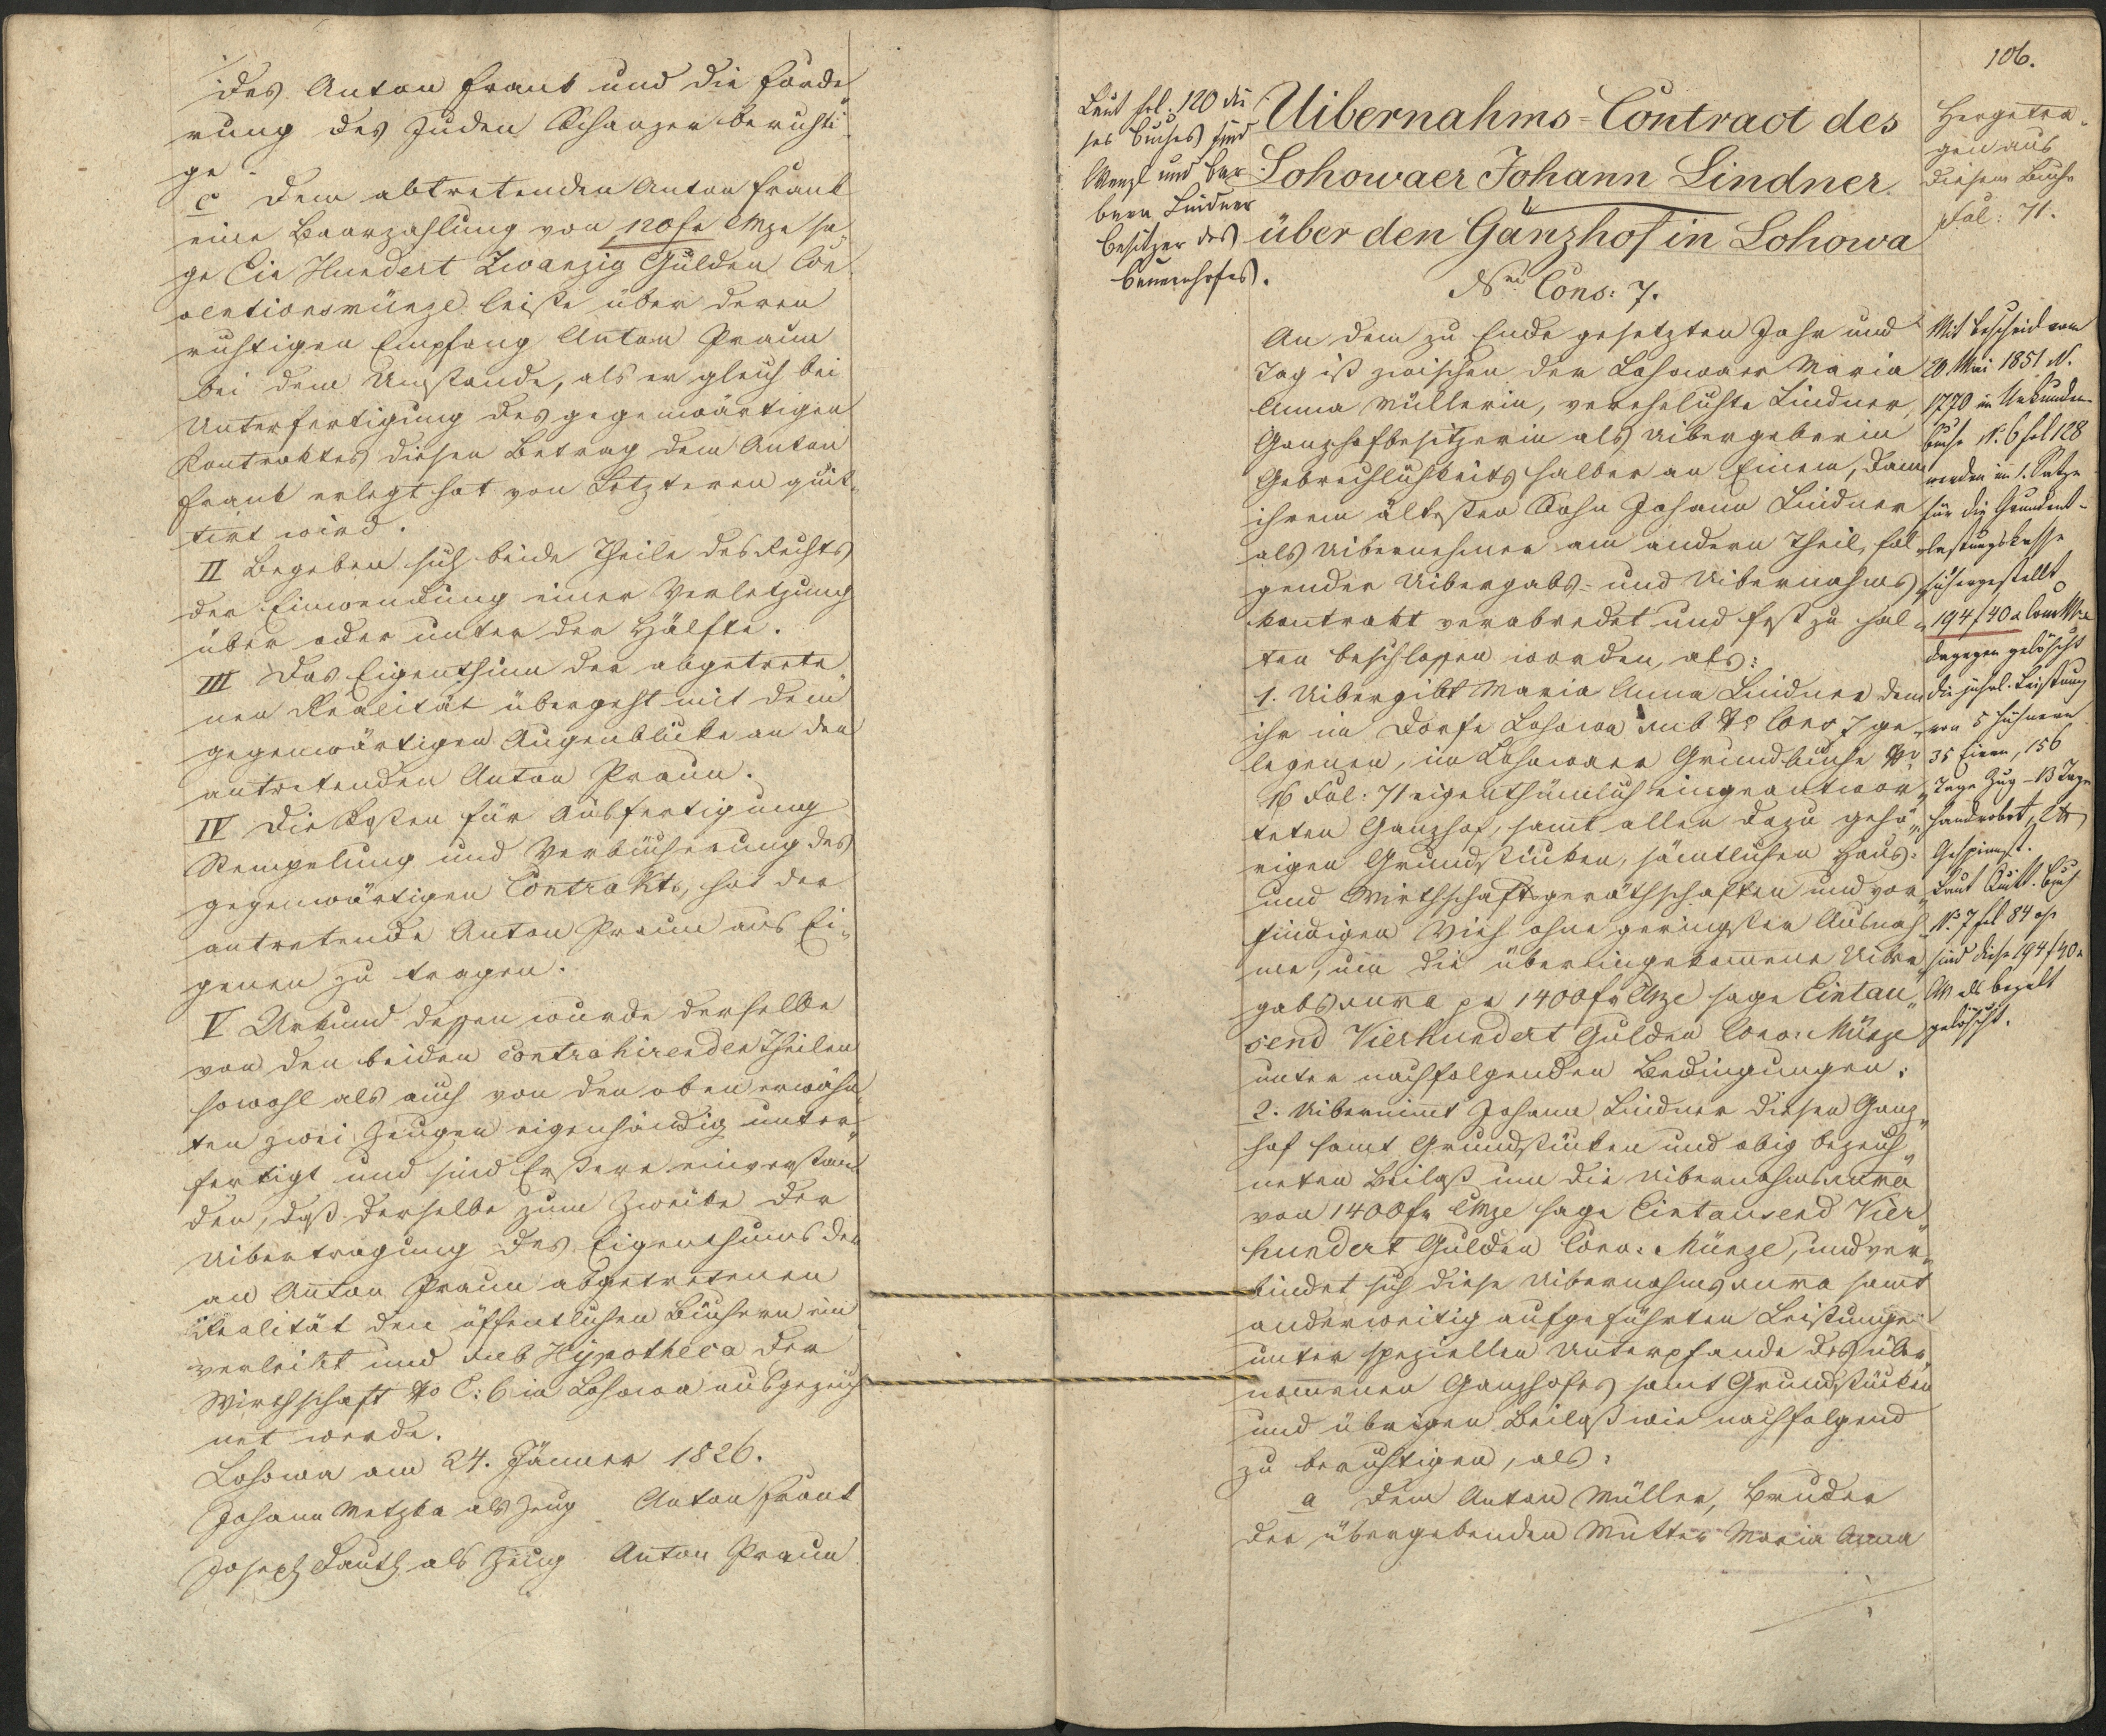 des Anton Frank und die Forde
rung des Juden Schanzer berichti
ge.
c dem abtretenden Anton Frank
eine Baarzahlung von 120 fr CMze sa„
ge Ein Hundert Zwanzig Gulden Con
ventionsmünze leiste über deren
richtigen Empfang Anton Praum
bei dem Umstande, als er gleich bei
Unterfertigung des gegenwärtigen
Kontraktes diesen Betrag dem Anton
Frank erlegt hat von Letzteren quit„
tirt wird.
II Begeben sich beide Theile des Rechts
der Einwendung einer Verletzung
über oder unter der Hälfte.
III Das Eigenthum der abgetrete
nen Realität übergeht mit dem
gegenwärtigen Augenblicke an den
antretenden Anton Praum.
IV Die Kosten für Ausfertigung
Stempelung und Verbücherung des
gegenwärtigen Contrakts, hat der
antretende Anton Praum aus Ei„
genen zu tragen.
V Urkund dessen wurde derselbe
von den beiden contrahirenden Theilen
sowohl als auch von den oben erwähn
ten zwei Zeugen eigenhändig unter„
fertigt und sind Erstere einverstan
den, daß derselbe zum Zwecke der
Uibertragung des Eigenthums der
an Anton Praum abgetretenen
Realität den öffentlichen Büchern ein
verleibt und sub Hypotheca der
Wirthschaft No C: 6 in Lohowa ausgezeich
net werde.
Lohowa am 24. Jänner 1826.
Johann Metzka als Zeug Anton Frank
Joseph Fauth als Zeug Anton Praum
106.
Laut fol. 120 die
ses Buches sind
Wenzl und Bar
bara Lindner
Besitzer des
Bauernhofes.
Uibernahms-Contract des
Lohowaer Johann Lindner
über den Ganzhof in Lohowa
Nri Cons: 7.
An dem zu Ende gesetzten Jahr und
Tag ist zwischen der Lohowaer Maria
Anna Müllerin, verehelichte Lindner,
Ganzhofbesitzerin als Uibergeberin
Gebrechlichkeits halber an Einem, dann
ihrem ältesten Sohn Johann Lindner
als Uibernehmer am andern Theil, fol„
gender Uibergabs- und Uibernahms
kontrakt verabredet und fest zu hal„
ten beschlossen worden, als:
1. Uibergibt Maria Anna Lindner dem
ihr im Dorfe Lohowa sub No Cons 7 ge„
legenen, im Lohowaer Grundbuche No
16 Fol: 71 eigenthümlich eingeantwor„
teten Ganzhof, samt allen dazu gehö„
rigen Grundstücken, sämtlichen Haus-
und Wirthschaftsgeräthschaften und vor„
findigen Vieh ohne geringsten Ausnah„
me, um die übereingekommene Uiber
gabssumma pr 1400 fr CMze sage Eintau„
send Vierhundert Gulden Conv: Münze
unter nachfolgenden Bedingungen:
2. Uibernimmt Johann Lindner diesen Ganz„
hof samt Grundstücken und obig bezeich„
neten Beilaß um die Uibernahmssumma
von 1400 fr CMze sage Eintausend Vier
hundert Gulden Conv: Münze, und ver„
bindet sich diese Uibernahmssumma samt
anderweitig aufgeführten Leistungen
unter speziellen Unterpfande des über„
nommenen Ganzhofes samt Grundstücken
und übrigen Beilaß wie nachfolgend
zu berichtigen, als:
a dem Anton Müller, Bruder
der übergebenden Mutter Maria Anna
Hergetra„
gen aus
diesem Buche
Fol: 71.
Mit Bescheid vom
20. Mai 1851 N.
1770 im Urkunden
buche N. 6 fol 128
werden im 1. Satze
für die Grundent-
lastungskasse
sichergestellt
194 f 40 x Conv Mze
dagegen gelöscht
die jährl. Leistung
von 5 Hühnern
35 Eiern, 156
Tage Zug - 13 Tage
Handrobot,
Gespinnst.
Laut Quitt. Buch
No 7 fol 84
sind diese 194 f 40 x
CM als bezalt
gelöscht.